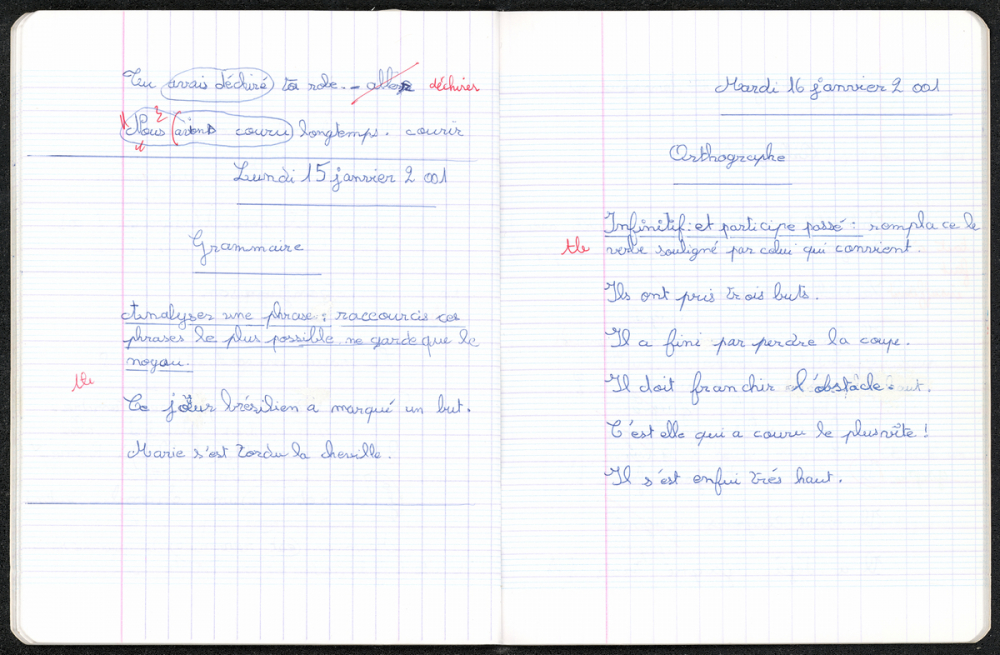 Tu avais déchiré ta robe. - aller déchirer
Nous avions couru longtemps. courir
Lundi 15 janvier 2 001
Grammaire
Analyser une phrase : raccourcis ces
phrases le plus possible ne garde que le
noyau.
tb
Ce joueur brésilien a marqué un but.
Marie s'est tordu la cheville.
Mardi 16 janvier 2 001
Orthographe
Infinitif et participe passé : rempla ce le
tb verbe souligné par celui qui convient.
Ils ont pris trois buts.
Il a fini par perdre la coupe.
Il doit franchir l'obstacle.
C'est elle qui a couru le plus vite !
Il s'est enfui trés haut.